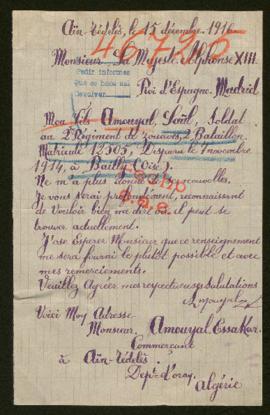 Aïn-Tédelès, le 15 décembre 1916
46730
Monsieur Sa Majesté Alphonse XIII
Pedir informes
Que se haga
devolver
Roi d'Espagne. Madrid
Mon fils Amouyal, Soldat
au 2e Régiment de zouaves, Bataillon
Matricule 12505, Disparu le 1 novembre
1914, à Bailly (Oise).
Ne m'a plus donné de nouvelles.
Je vous serai reconnaissant
de vouloir bien me dire où il peut se
trouver actuellement.
J'ose Espérer Monsieur que ce renseignement
me sera fourni le plutôt possible et avec
mes remerciements.
Veuillez Agréer mes respectueuses salutations
Amouyal
Voici Mon Adresse
Monsieur, Amouyal Essakar.
Commerçant
à Aïn-Tédelès.
Dept d'Oran.
Algérie